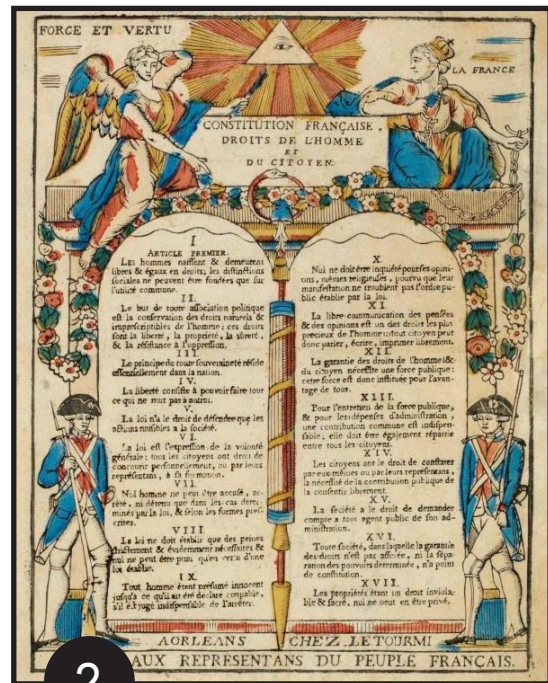 FORCE ET VERTU
LA FRANCE
CONSTITUTION FRANÇAISE,
DROITS DE L'HOMME
ET
DU CITOYEN.
I
ARTICLE PREMIER.
Les hommes naissent & demeurent
libres & égaux en droits; les distinctions
sociales ne peuvent être fondées que sur
l'utilité commune.
II.
Le but de toute association politique
est la conservation des droits naturels &
imprescriptibles de l'homme; ces droits
sont la liberté, la propriété, la sûreté,
& la résistance à l'oppression.
III.
Le principe de toute souveraineté réside
essentiellement dans la nation.
IV.
La liberté consiste à pouvoir faire tout
ce qui ne nuit pas à autrui.
V.
La loi n'a le droit de défendre que les
actions nuisibles à la société.
VI.
La loi est l'expression de la volonté
générale; tous les citoyens ont droit de
concourir personnellement, ou par leurs
représentans, à sa formation.
VII.
Nul homme ne peut être accusé, ar-
rêté, ni détenu que dans les cas déter-
minés par la loi, & selon les formes pres-
crites.
VIII.
La loi ne doit établir que des peines
strictement & évidemment nécessaires &
nul ne peut être puni qu'en vertu d'une
loi établie.
IX.
Tout homme étant présumé innocent
jusqu'à ce qu'il ait été déclaré coupable,
s'il est jugé indispensable de l'arrêter.
X.
Nul ne doit être inquiété pour ses opini-
ons, mêmes religieuses, pourvu que leur
manifestation ne troublent pas l'ordre pu-
blic établie par la loi.
XI.
La libre communication des pensées
& des opinions est un des droits les plus
précieux de l'homme: tout citoyen peut
donc parler, écrire, imprimer librement.
XII.
La garantie des droits de l'homme &
du citoyen nécessite une force publique:
cette force est donc instituée pour l'avan-
tage de tous.
XIII.
Pour l'entretien de la force publique,
& pour les dépenses d'administration,
une contribution commune est indispen-
sable, elle doit être également répartie
entre tous les citoyens.
XIV.
Les citoyens ont le droit de constater
par eux-mêmes ou par leurs représentans,
la nécessité de la contribution publique de
la consentir librement.
XV.
La société a le droit de demander
compte à tout agent public de son ad-
ministration.
XVI.
Toute société, dans laquelle la garantie
des droits n'est pas assurée, ni la sépa-
ration des pouvoirs déterminée, n'a point
de constitution.
XVII.
Les propriétés étant un droit inviola-
ble & sacré, nul ne peut en être privé.
A ORLEANS CHEZ LETOURMI
AUX REPRÉSENTANS DU PEUPLE FRANÇAIS.
2